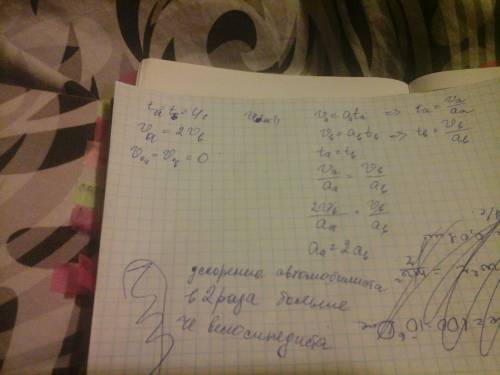 tₐ = t_в = 4с
vₐ = 2v_в
v₀ₐ = v₀в = 0
vₐ = aₐtₐ => tₐ = vₐ/aₐ
v_в = a_вt_в => t_в = v_в/a_в
tₐ = t_в
vₐ/aₐ = v_в/a_в
2v_в/aₐ = v_в/a_в
aₐ = 2a_в
ускорение автомобилиста
в 2 раза больше
че велосипедиста